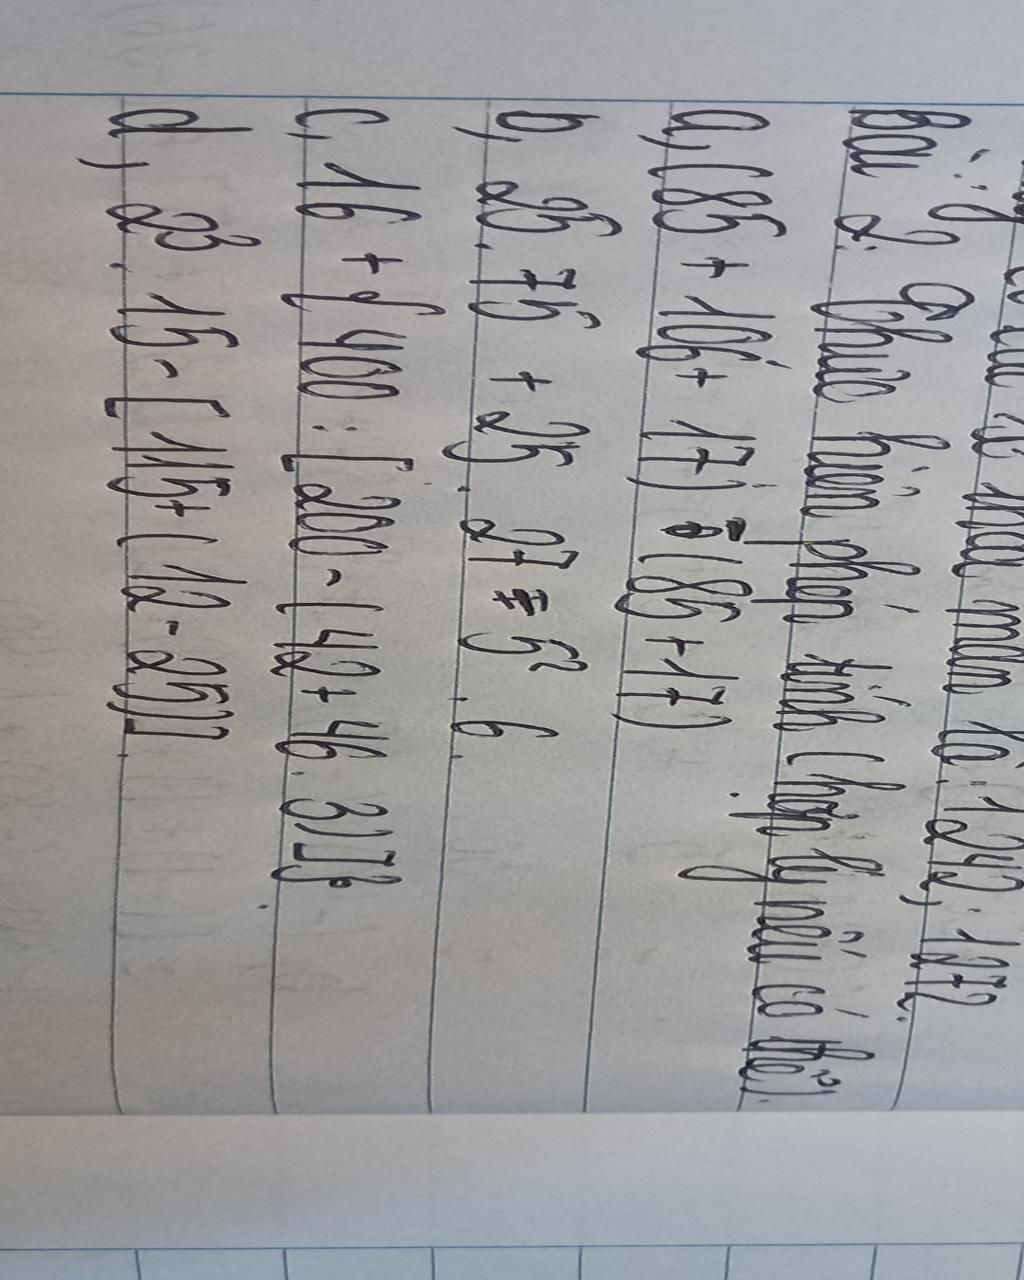 là: 1242; 1872.
Bài 2: Thực hiện phép tính (hợp lý nếu có thể).
a, (85 + 106 + 17) - (85 + 17)
b, 25 . 75 + 25 . 27 - 5² . 6.
c, 16 + { 400 : [ 200 - (42 + 46 . 3)]}.
d, 2³ . 15 - [ 115 + (12 - 25)].